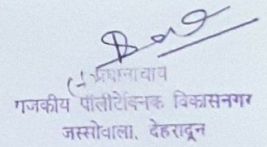 प्रधानाचार्य
राजकीय पॉलीटेक्निक विकासनगर
जस्सोवाला, देहरादून